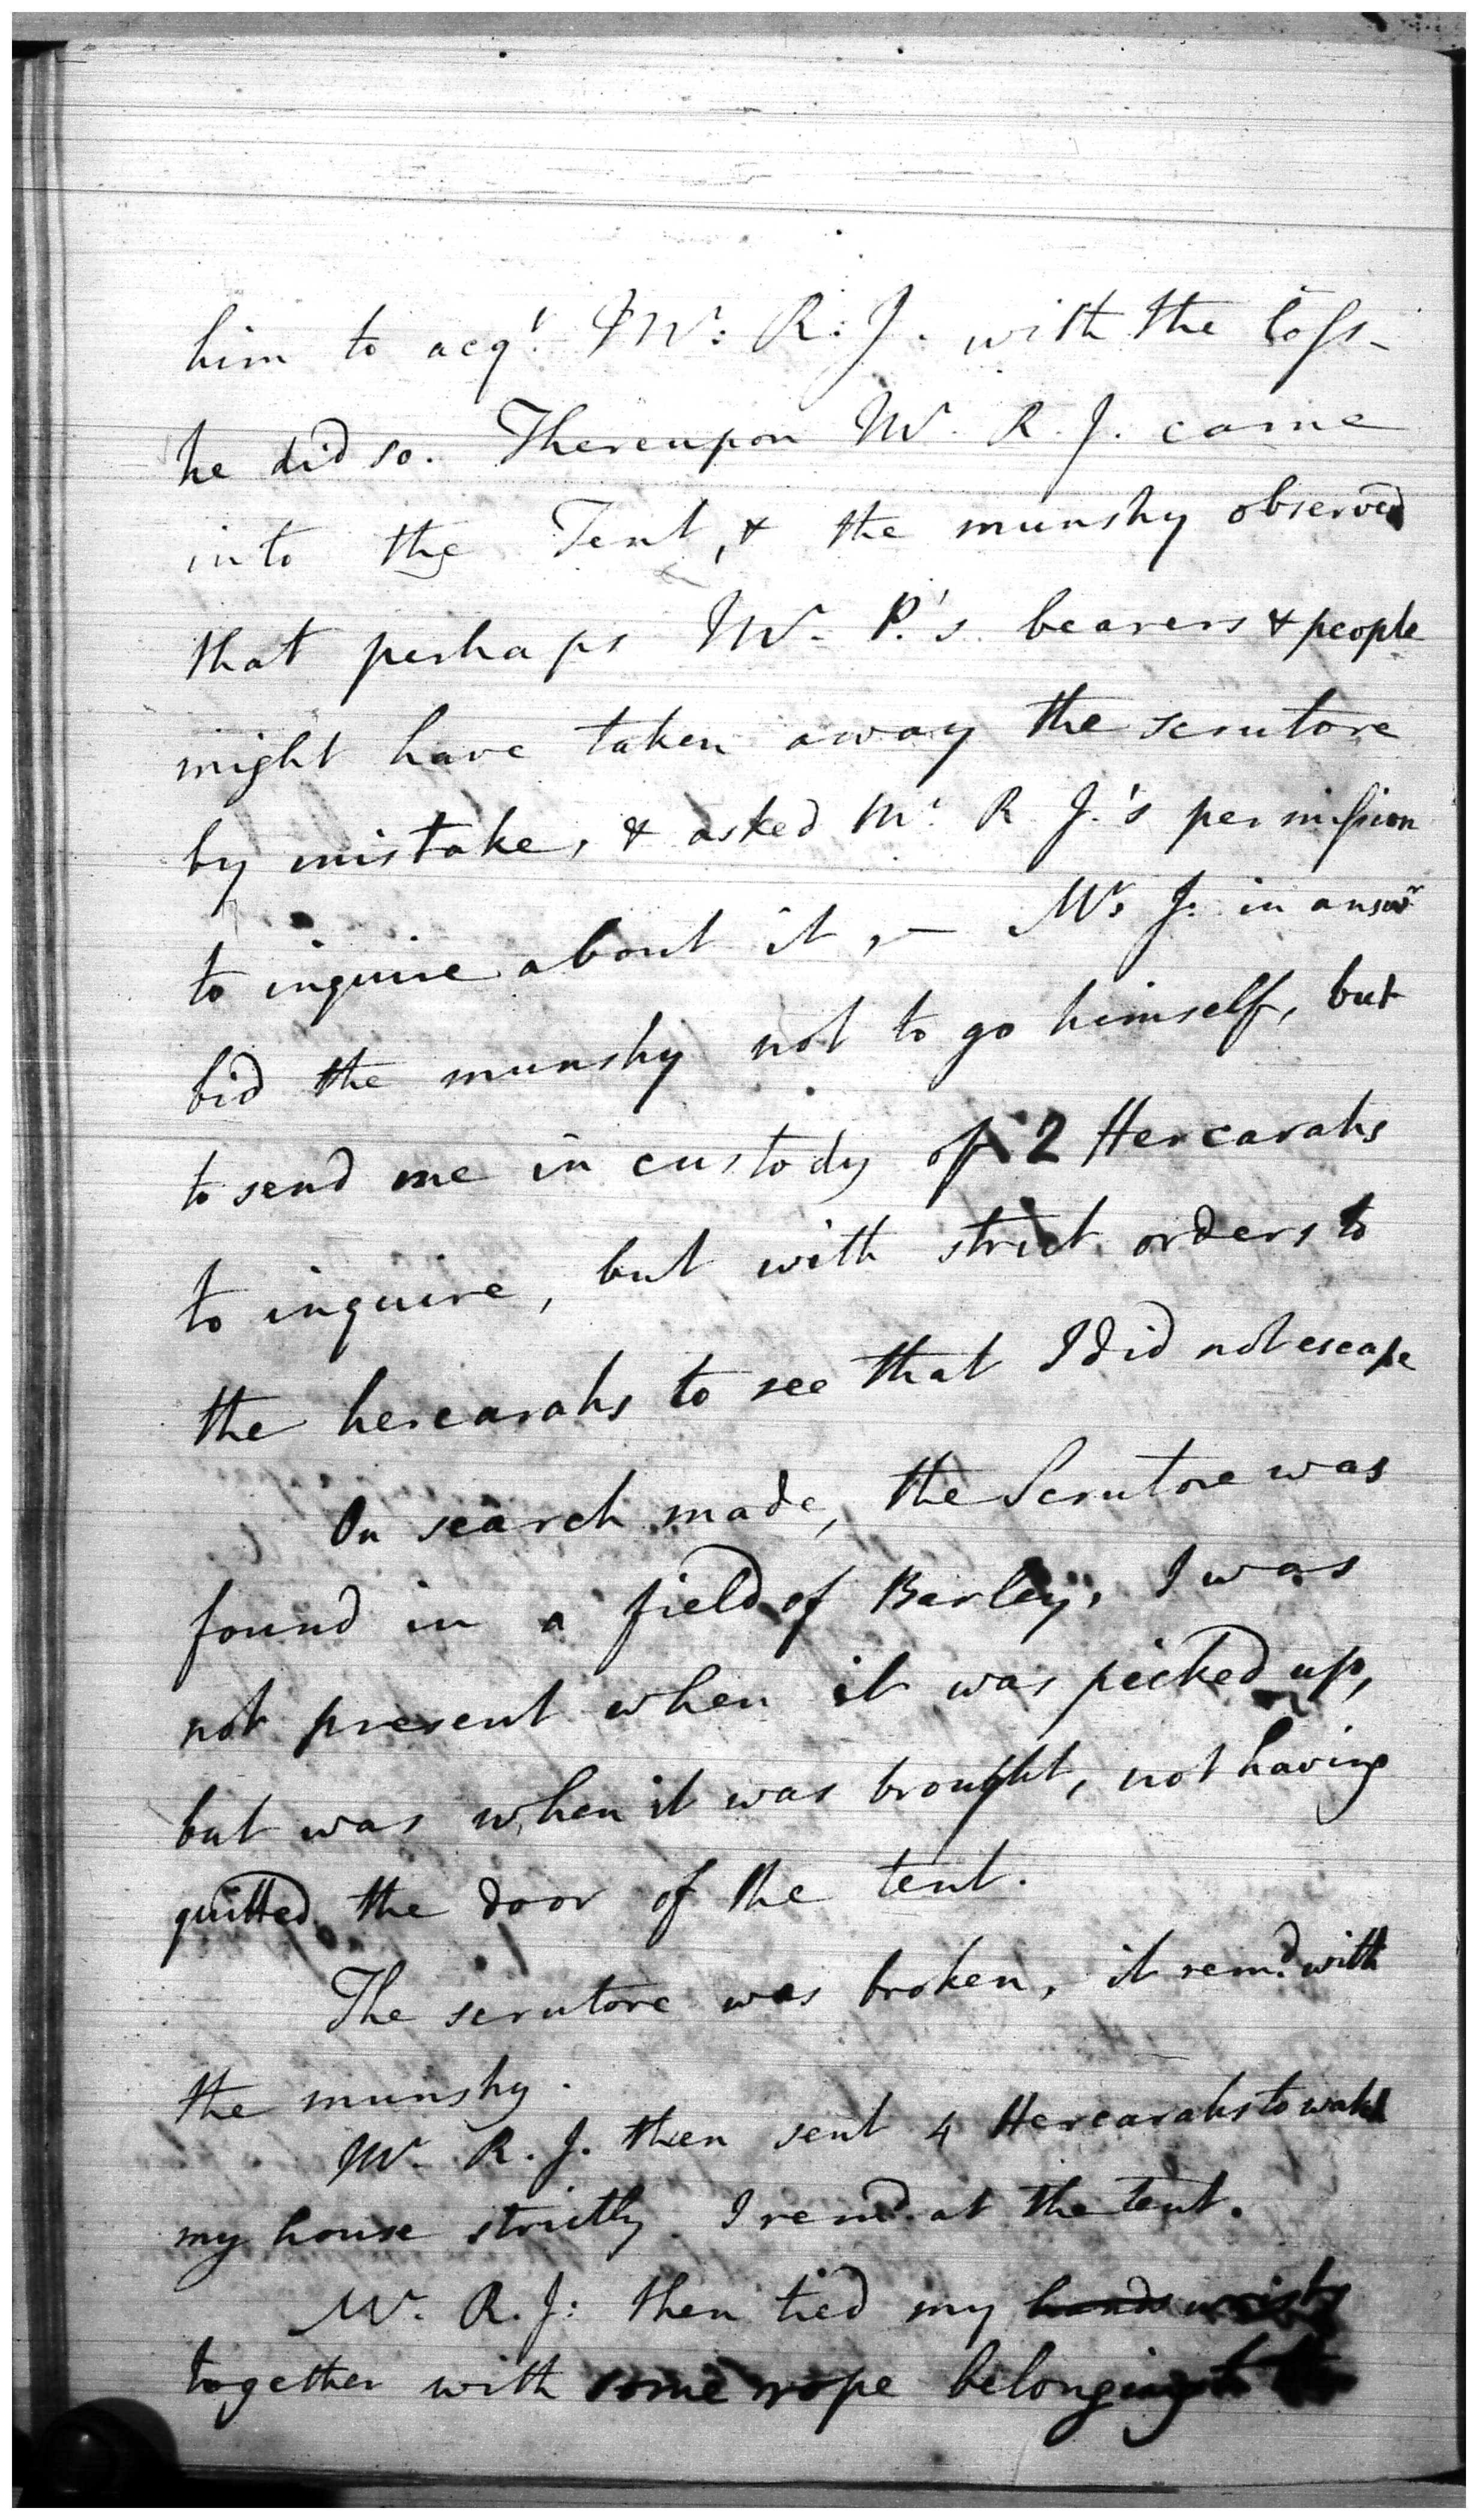 him to acqt. Mr: R: J. with the loss-
he did so. Thereupon Mr. R. J. came
into the Tent, & the munshy observed
that perhaps Mr. P.'s bearers & people
might have taken away the scrutore
by mistake, & asked Mr. R J.'s permission
to inquire about it, — Mr. J: in answr
bid the munshy not to go himself, but
to send me in custody of 2 Hercarahs
to inquire, but with strict orders to
the hercarahs to see that I did not escape
On search made, the Scrutore was
found in a field of Barley, I was
not present when it was picked up,
but was when it was brought, not having
quitted the door of the tent.
The scrutore was broken, it remd. with
the munshy.
Mr. R. J. then sent 4 Hercarahs to watch
my house strictly. I remd. at the tent.
Mr. R. J: then tied my hands wrists
together with some rope belonging to